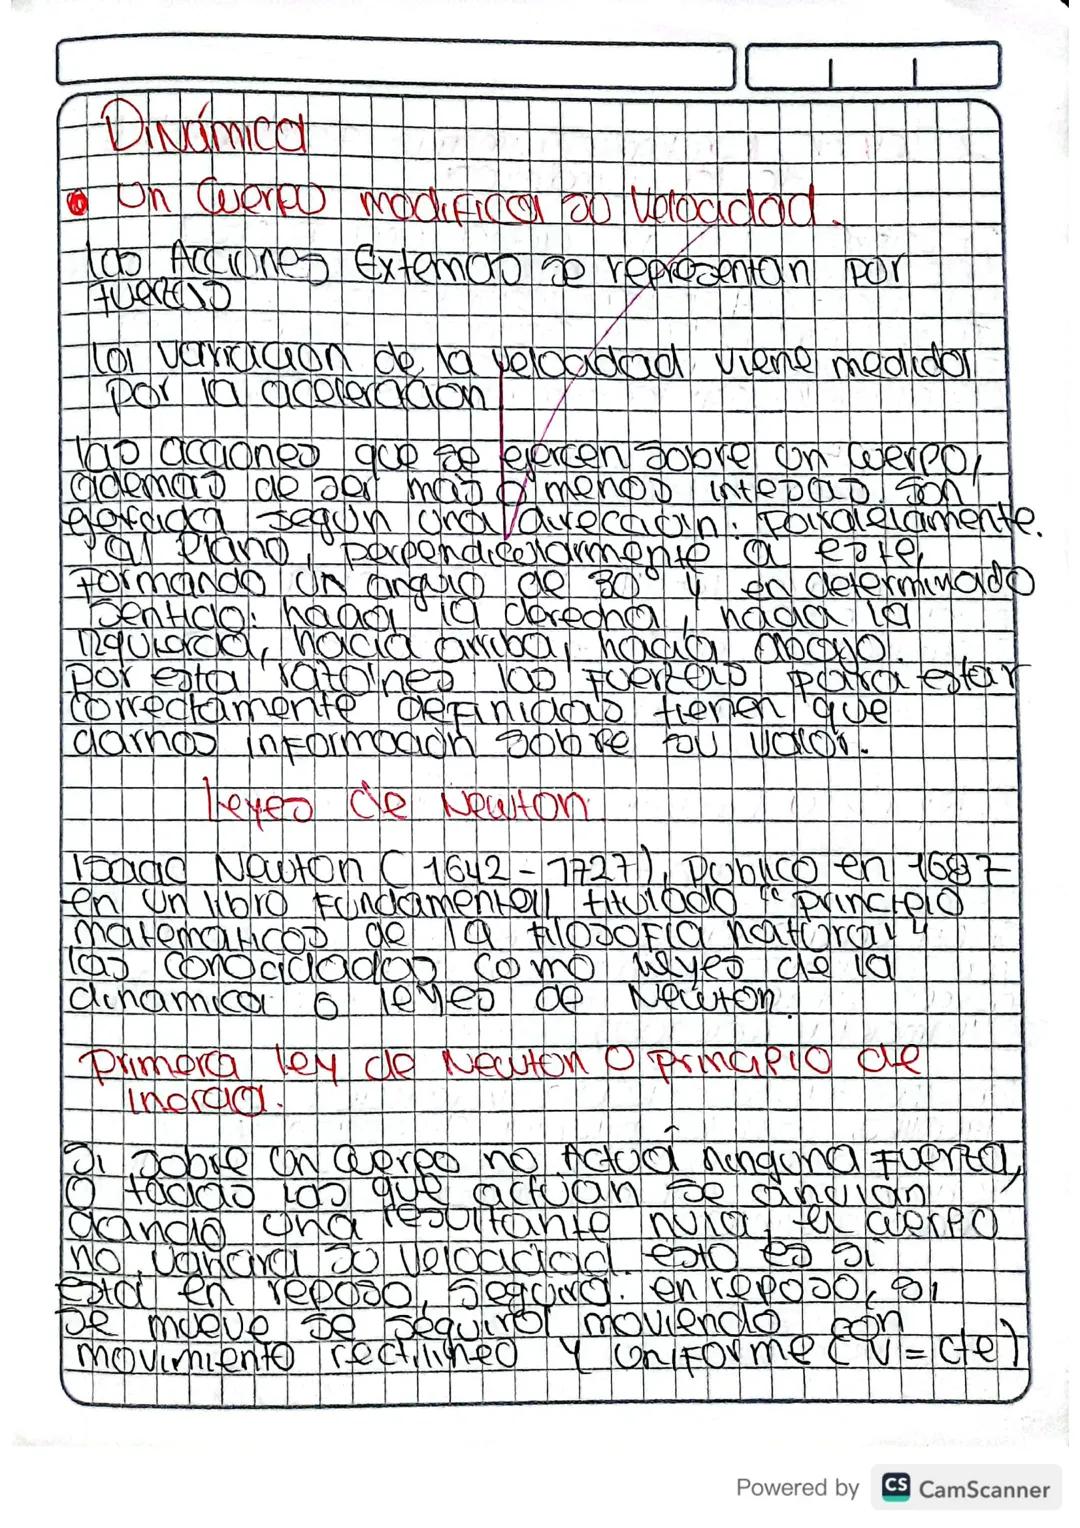 Dinámica
Un Cuerpo modifica su Velocidad.
las Acciones Externas se representan por
fuerzas
La variación de la velocidad viene medida
por la aceleración
las acciones que se ejercen sobre un cuerpo,
ademas de ser mas o menos son
segun una direccion: paralelamente.
al plano, perpendicularmente a este,
formando un angulo de 30 y en determinado
sentido: hacia la derecha, hacia la
izquierda, hacia arriba, hacia abajo.
por esta razones las fuerzas para estar
correctamente definidas tienen que
darnos información sobre su valor.
Leyes de Newton
Isaac Newton (1642-1727), publico en 1687
en un libro fundamental titulado "principio
matematicos de la filosofia natural"
las conocidadas como leyes de la
dinamica o leyes de Newton.
Primera ley de Newton o principio de
Inercia.
Si sobre un cuerpo no Actua ninguna fuerza,
o todas las que actuan se anulan
dando una resultante nula, el cuerpo
no variara su velocidad. esto es si
esta en reposo, seguira. en reposo, si
se mueve se seguira moviendo con
movimiento rectilineo y uniforme (v=cte)
Powered by CS CamScanner